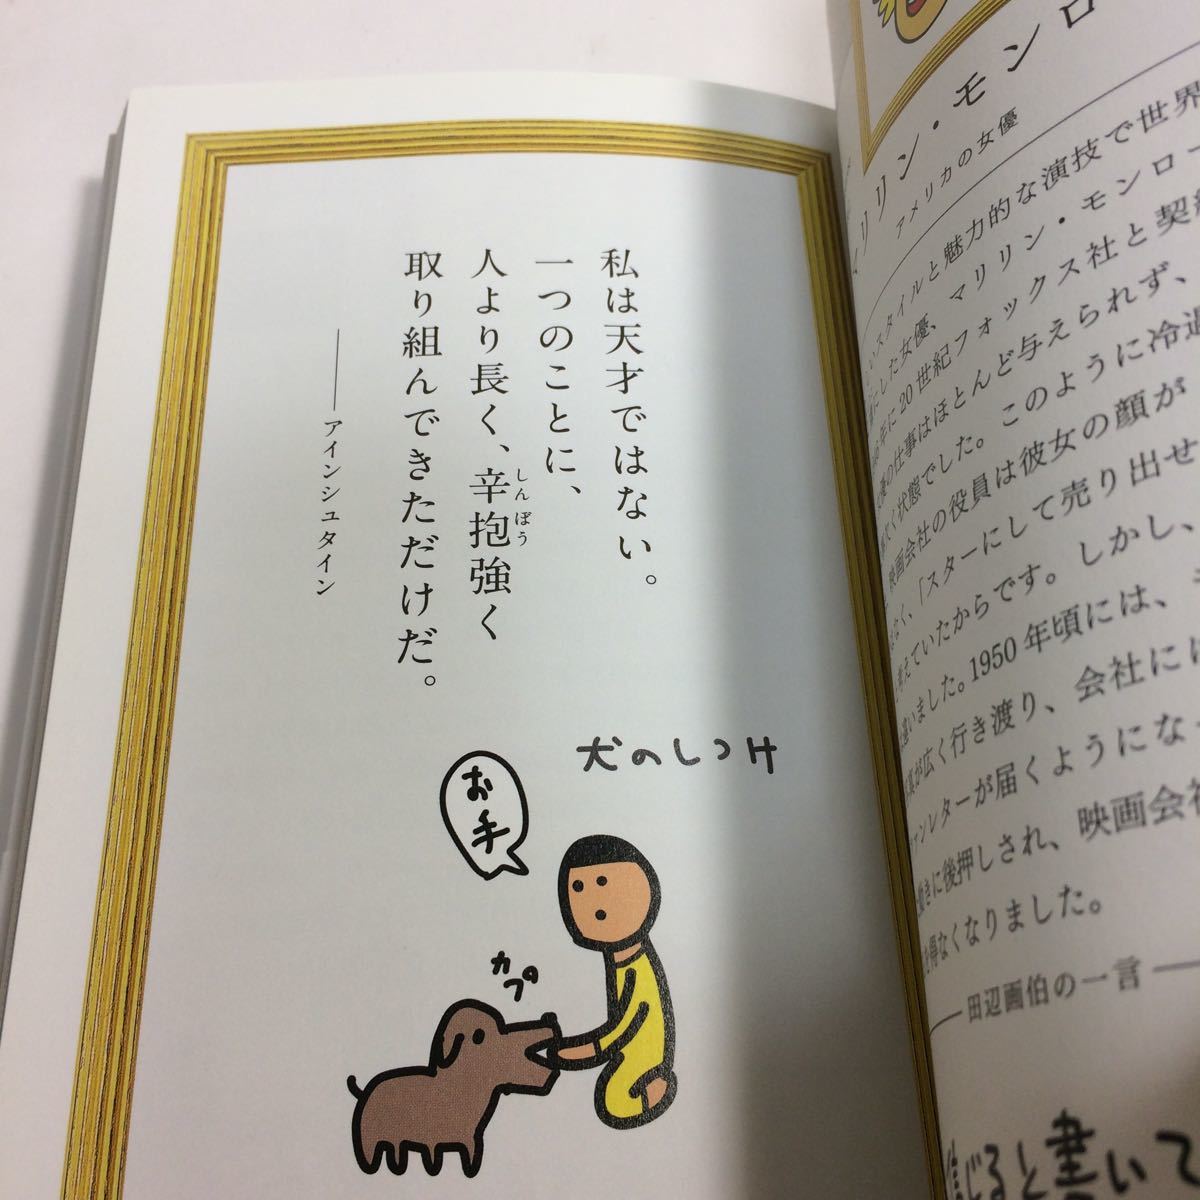 私は天才ではない。
一つのことに、
人より長く、辛抱強く
しんぼう
取り組んできただけだ。
――アインシュタイン
犬のしつけ
お手
カプッ
リリン・モンロ
アメリカの女優
いスタイルと魅力的な演技で世界
にした女優、マリリン・モンロー
年に20世紀フォックス社と契約
の仕事はほとんど与えられず、
く状態でした。このように冷遇
映画会社の役員は彼女の顔が
なく、「スターにして売り出せ
考えていたからです。しかし、
違いました。1950年頃には、
真が広く行き渡り、会社には
ァンレターが届くようにな
きに後押しされ、映画会社
得なくなりました。
――田辺画伯の一言――
信じると書いて